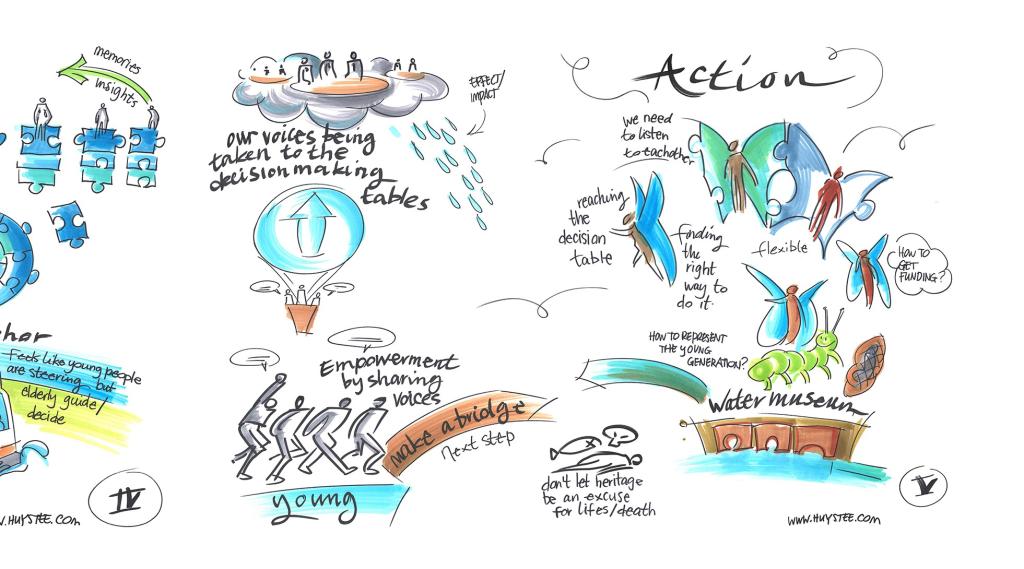 memories
insights
Feels like young people
are steering but
elderly guide/
decide
IV
our voices being
taken to the
decision making
tables
EFFECT/
IMPACT
Empowerment
by sharing
voices
make a bridge
next step
young
WWW.HUYSTEE.COM
Action
we need
to listen
to eachother
reaching
the
decision
table
finding
the
right
way to
do it.
flexible
HOW TO
GET
FUNDING?
HOW TO REPRESENT
THE YOUNG
GENERATION?
Water museum
don't let heritage
be an excuse
for lifes/death
WWW.HUYSTEE.COM
V